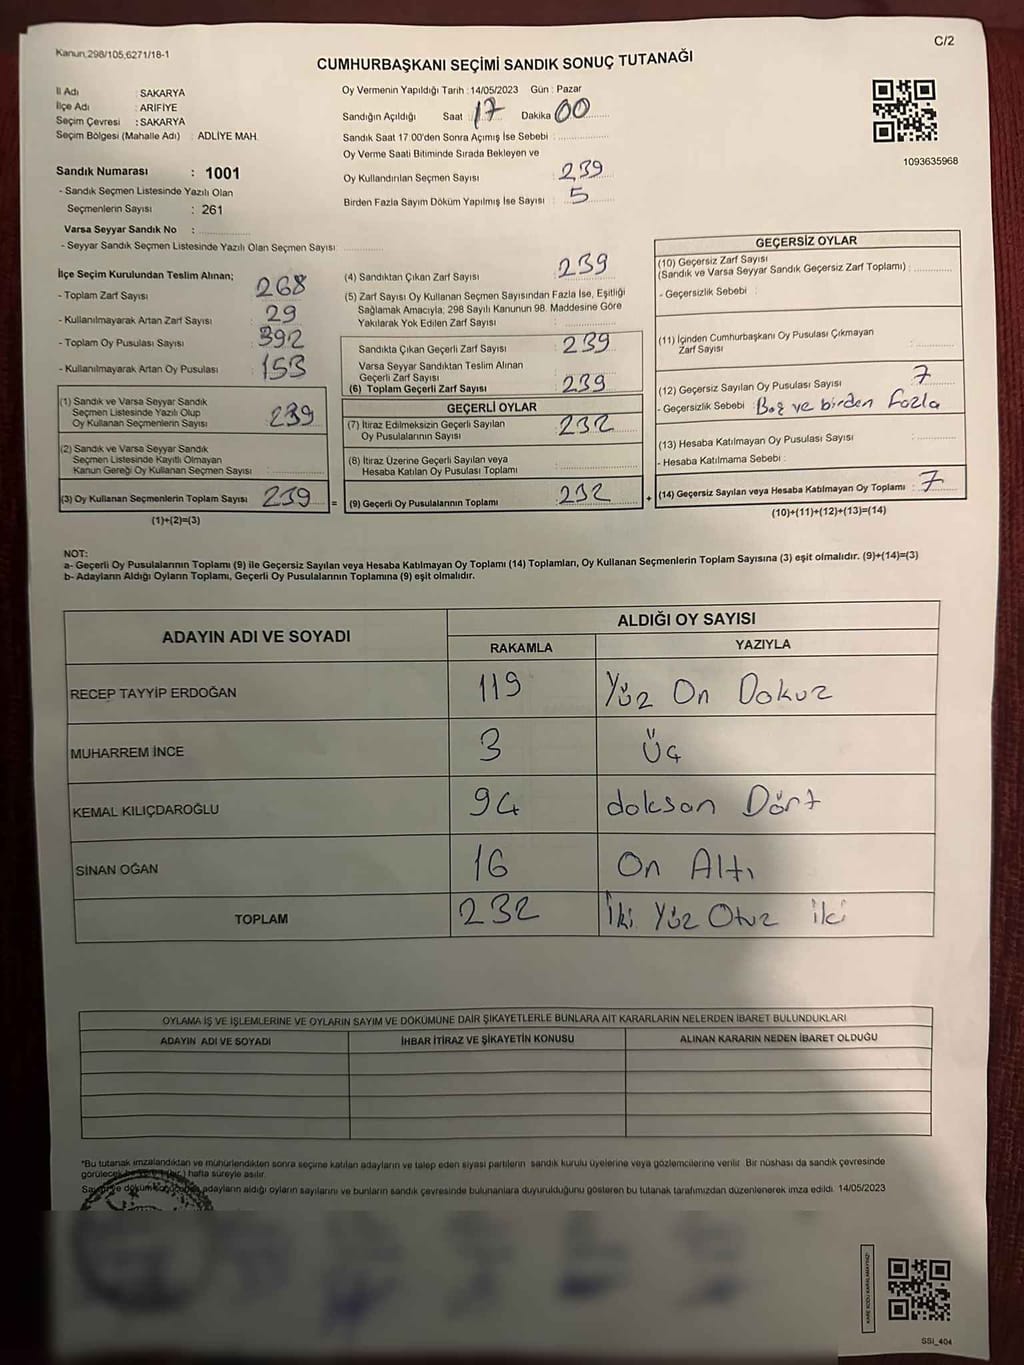 Kanun,298/105,6271/18-1
C/2
CUMHURBAŞKANI SEÇİMİ SANDIK SONUÇ TUTANAĞI
İl Adı : SAKARYA
İlçe Adı : ARİFİYE
Seçim Çevresi : SAKARYA
Seçim Bölgesi (Mahalle Adı) : ADLİYE MAH.
Oy Vermenin Yapıldığı Tarih : 14/05/2023 Gün : Pazar
Sandığın Açıldığı Saat : 17 Dakika 00
Sandık Saat 17.00'den Sonra Açımış İse Sebebi :
Oy Verme Saati Bitiminde Sırada Bekleyen ve
Oy Kullandırılan Seçmen Sayısı : 239
Birden Fazla Sayım Döküm Yapılmış İse Sayısı : 5
1093635968
Sandık Numarası : 1001
- Sandık Seçmen Listesinde Yazılı Olan
Seçmenlerin Sayısı : 261
Varsa Seyyar Sandık No :
- Seyyar Sandık Seçmen Listesinde Yazılı Olan Seçmen Sayısı :
İlçe Seçim Kurulundan Teslim Alınan;
- Toplam Zarf Sayısı 268
- Kullanılmayarak Artan Zarf Sayısı 29
- Toplam Oy Pusulası Sayısı 392
- Kullanılmayarak Artan Oy Pusulası 153
(1) Sandık ve Varsa Seyyar Sandık
Seçmen Listesinde Yazılı Olup
Oy Kullanan Seçmenlerin Sayısı 239
(2) Sandık ve Varsa Seyyar Sandık
Seçmen Listesinde Kayıtlı Olmayan
Kanun Gereği Oy Kullanan Seçmen Sayısı
(3) Oy Kullanan Seçmenlerin Toplam Sayısı 239 =
(1)+(2)=(3)
(4) Sandıktan Çıkan Zarf Sayısı : 239
(5) Zarf Sayısı Oy Kullanan Seçmen Sayısından Fazla İse, Eşitliği
Sağlamak Amacıyla; 298 Sayılı Kanunun 98. Maddesine Göre
Yakılarak Yok Edilen Zarf Sayısı :
Sandıkta Çıkan Geçerli Zarf Sayısı : 239
Varsa Seyyar Sandıktan Teslim Alınan
Geçerli Zarf Sayısı
(6) Toplam Geçerli Zarf Sayısı : 239
GEÇERLİ OYLAR
(7) İtiraz Edilmeksizin Geçerli Sayılan
Oy Pusulalarının Sayısı : 232
(8) İtiraz Üzerine Geçerli Sayılan veya
Hesaba Katılan Oy Pusulası Toplamı
(9) Geçerli Oy Pusulalarının Toplamı : 232 +
GEÇERSİZ OYLAR
(10) Geçersiz Zarf Sayısı
(Sandık ve Varsa Seyyar Sandık Geçersiz Zarf Toplamı) :
- Geçersizlik Sebebi :
(11) İçinden Cumhurbaşkanı Oy Pusulası Çıkmayan
Zarf Sayısı :
(12) Geçersiz Sayılan Oy Pusulası Sayısı : 7
- Geçersizlik Sebebi : Boş ve birden fazla
(13) Hesaba Katılmayan Oy Pusulası Sayısı :
- Hesaba Katılmama Sebebi :
(14) Geçersiz Sayılan veya Hesaba Katılmayan Oy Toplamı : 7
(10)+(11)+(12)+(13)=(14)
NOT:
a- Geçerli Oy Pusulalarının Toplamı (9) ile Geçersiz Sayılan veya Hesaba Katılmayan Oy Toplamı (14) Toplamları, Oy Kullanan Seçmenlerin Toplam Sayısına (3) eşit olmalıdır. (9)+(14)=(3)
b- Adayların Aldığı Oyların Toplamı, Geçerli Oy Pusulalarının Toplamına (9) eşit olmalıdır.
ADAYIN ADI VE SOYADI ALDIĞI OY SAYISI
RAKAMLA YAZIYLA
RECEP TAYYİP ERDOĞAN 119 Yüz On Dokuz
MUHARREM İNCE 3 Üç
KEMAL KILIÇDAROĞLU 94 doksan Dört
SİNAN OĞAN 16 On Altı
TOPLAM 232 İki Yüz Otuz iki
OYLAMA İŞ VE İŞLEMLERİNE VE OYLARIN SAYIM VE DÖKÜMÜNE DAİR ŞİKAYETLERLE BUNLARA AİT KARARLARIN NELERDEN İBARET BULUNDUKLARI
ADAYIN ADI VE SOYADI İHBAR İTİRAZ VE ŞİKAYETİN KONUSU ALINAN KARARIN NEDEN İBARET OLDUĞU
*Bu tutanak imzalandıktan ve mühürlendikten sonra seçime katılan adayların ve talep eden siyasi partilerin sandık kurulu üyelerine veya gözlemcilerine verilir. Bir nüshası da sandık çevresinde
görülecek hafta süreyle asılır.
adayların aldığı oyların sayılarını ve bunların sandık çevresinde bulunanlara duyurulduğunu gösteren bu tutanak tarafımızdan düzenlenerek imza edildi. 14/05/2023
SSI_404